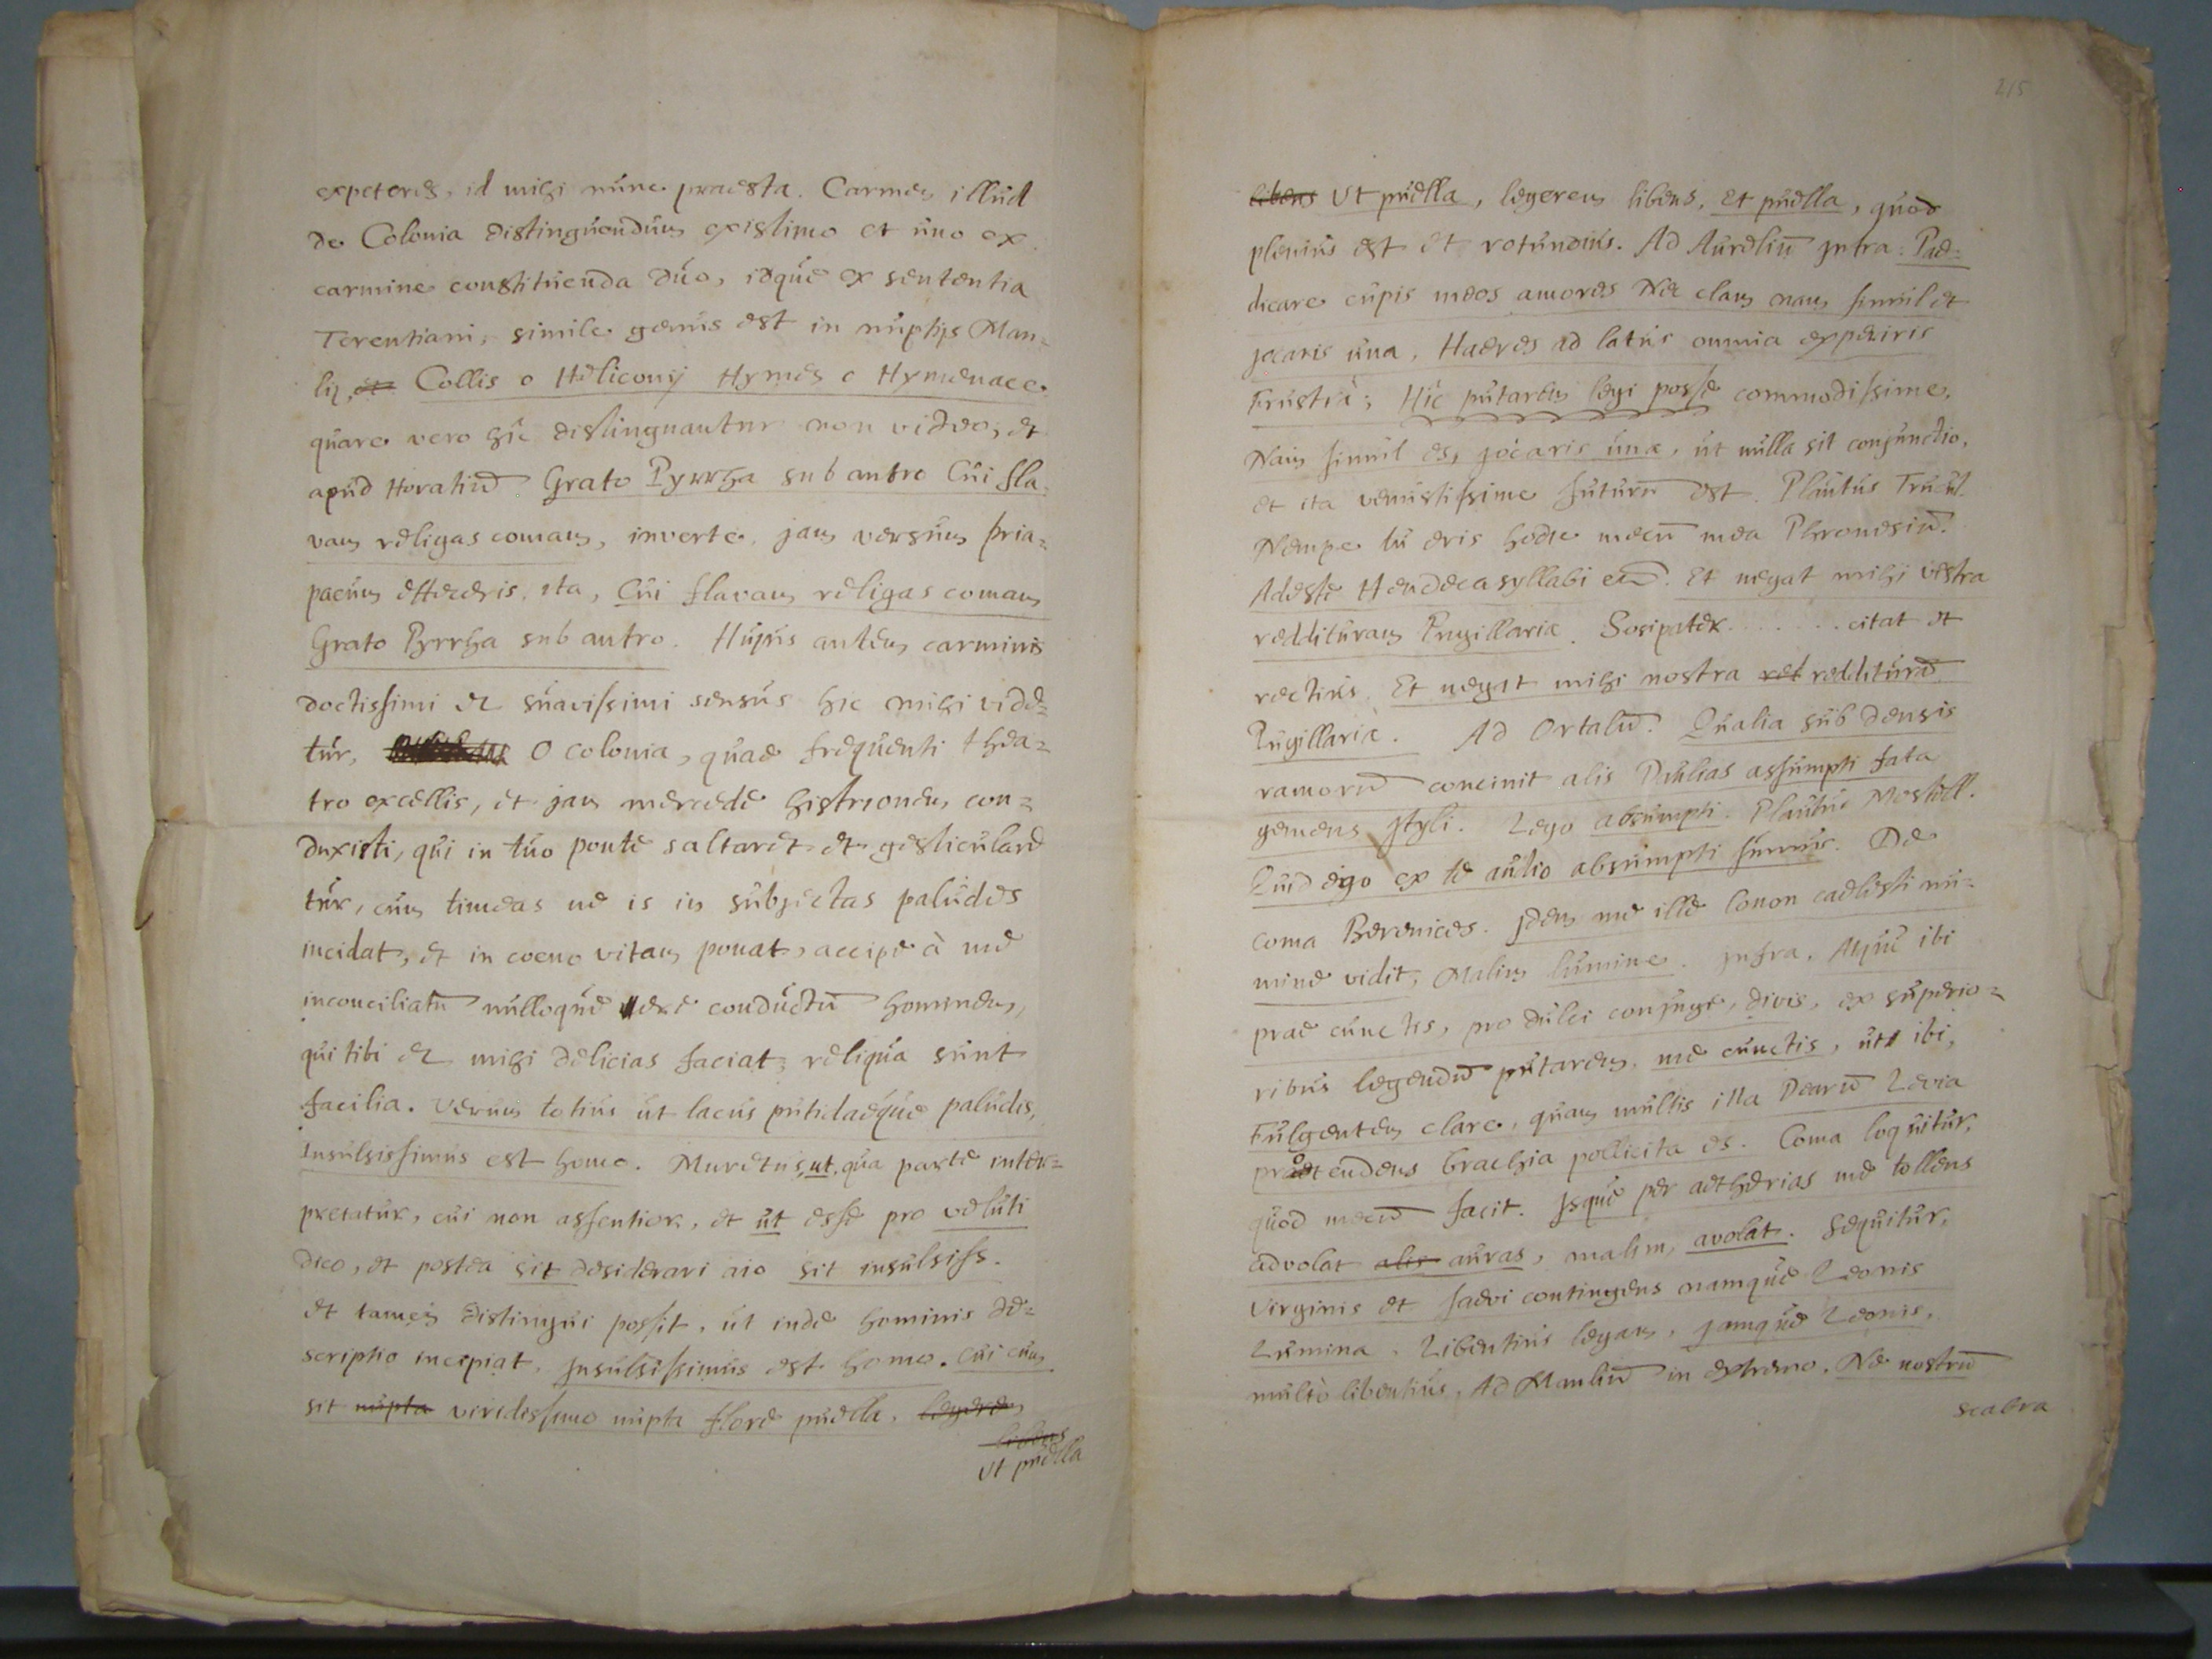 expeteres, id mihi nunc praesta. Carmen illud
de Colonia distinguendum existimo et uno ex
carmine constituenda duo, idque ex sententia
Terentiani, simile genus est in nuptijs Man=
lij, et Collis o Heliconij Hymen o Hymenaee
quare vero hic distinguantur non video, et
apud Horatiū Grato Pyrrha sub antro Cui fla=
vam religas comam, inverte, jam versum pria=
paeum effeceris, ita, Cui flavam religas comam
Grato Pyrrha sub antro. Hujus autem carminis
doctissimi et suavissimi sensus hic mihi vide=
tur, O Colonia, quae frequenti thea=
tro excellis, et jam mercede histrionem con=
duxisti, qui in tuo ponte saltaret et gesticulare
tur, cum timeas ne is in subjectas paludes
incidat, et in coeno vitam ponat, accipe à me
inconciliatū nulloque aere conductū hominem,
qui tibi et mihi delicias faciat; reliqua sunt
facilia. Verum totius ut lacus putidaeque paludis,
Insulsissimus est homo. Muretus, ut, qua parte inter=
pretatur, cui non assentior, et ut esse pro veluti
dico, et postea sit desiderari aio sit insulsiss.
et tamen distingui possit, ut inde hominis de=
scriptio incipiat, Insulsissimus est homo. Cui cum
sit nupta viridissimo nupta flore puella, legerem
libens
ut puella
215
libens Ut puella, legerem libens, Et puella, quod
plenius est et rotundius. Ad Aureliū jntra: Pae=
dicare cupis meos amores Nec clam nam simul et
jocaris una, Haeres ad latus omnia experiris
Frustrà; Hic putarem legi posse commodissime,
Nam simul es, jocaris una, ut nulla sit conjunctio,
et ita venustissime futurū est. Plautus Trucul.
Nempe tu eris hodie mecū mea Phronesiū.
Adeste Hendecasyllabi etc. Et negat mihi vestra
reddituram Pugillaria. Sosipater . . . . . . citat et
rectius. Et negat mihi nostra red redditurā
Pugillaria. Ad Ortalū. Qualia sub densis
ramorū concinit alis Daulias assumpti fata
gemens Jtyli. Lego absumpti. Plautus Mostell.
Quid ego ex te audio absumpti sumus. De
coma Berenices. Jdem me ille Conon caelesti nu=
mine vidit, Malim lumine. jnfra, Atqui ibi
prae cunctis, pro dulci conjuge, divis, ex superio=
ribus legendū putarem, me cunctis, ut ibi,
Fulgentem clare, quam multis illa Dearū Levia
protendens brachia pollicita es. Coma loquitur,
quod mecū facit. Jsque per aetherias me tollens
advolat alis auras, malim, avolat. Sequitur,
Virginis et saevi contingens namque Leonis
Lumina. Libentius legam, jamque Leonis,
multò libentius, Ad Manliū in extremo. Ne nostrū
scabra